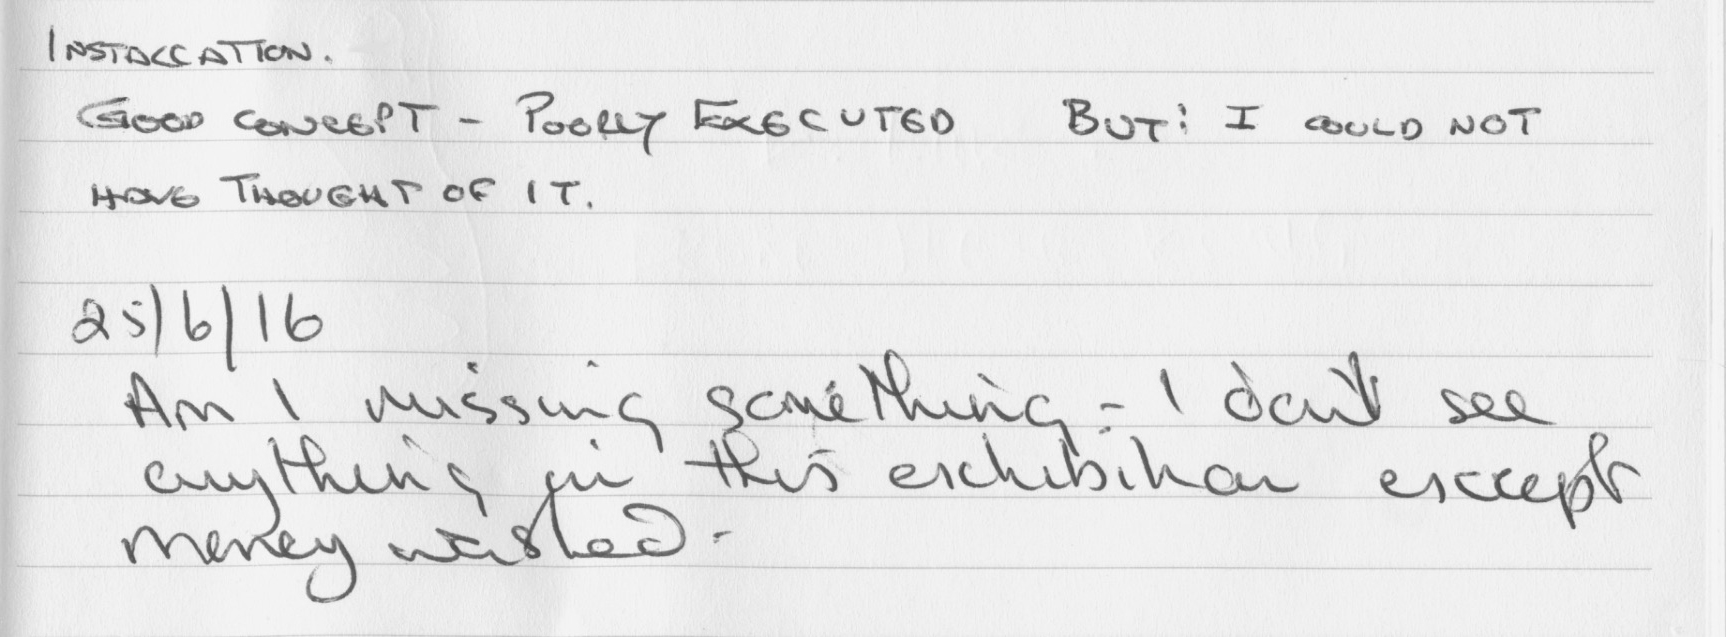 INSTALLATION.
GOOD CONCEPT - POORLY EXECUTED BUT: I COULD NOT
HAVE THOUGHT OF IT.
25/6/16
Am I missing something - I don't see
anything in this exhibition except
money wasted.